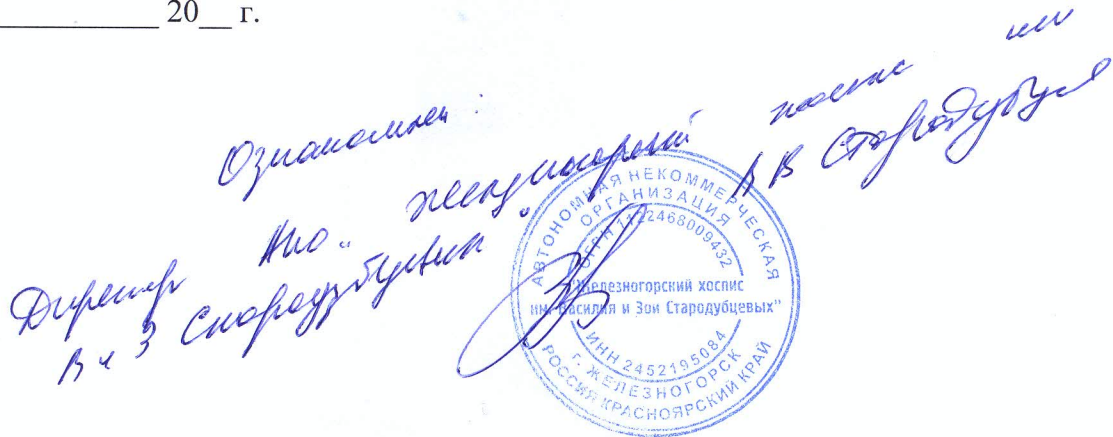 ____________ 20__ г.
Ознакомлен:
Директор АНО "Железногорский хоспис им
В и З Стародубцевых" В Стародубцев
АВТОНОМНАЯ НЕКОММЕРЧЕСКАЯ
ОРГАНИЗАЦИЯ
ОГРН 1122468009432
"Железногорский хоспис
им. Василия и Зои Стародубцевых"
ИНН 2452195084
г. ЖЕЛЕЗНОГОРСК
РОССИЯ КРАСНОЯРСКИЙ КРАЙ